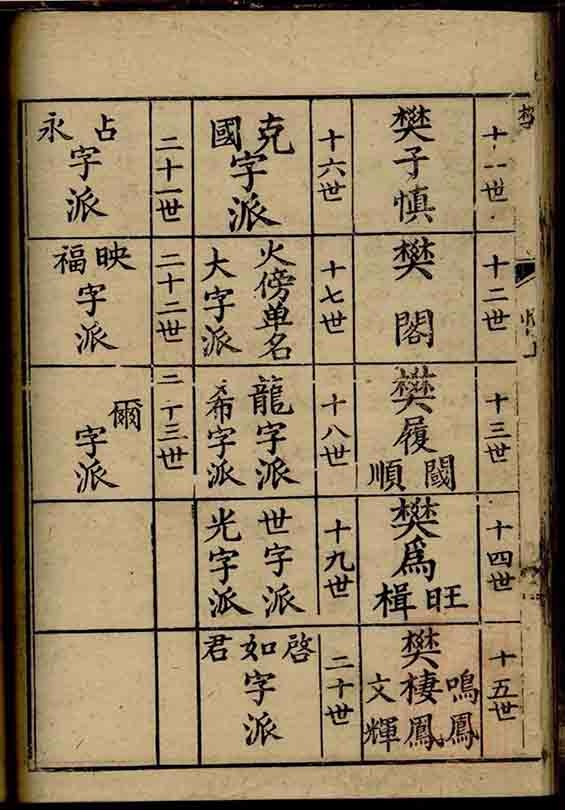 十一世
樊子慎
十二世
樊閣
十三世
樊履
閾順
十四世
樊為
旺楫
十五世
樊棲鳳
鳴鳳
文輝
十六世
克國字派
十七世
火傍单名
大字派
十八世
龍字派
希字派
十九世
世字派
光字派
二十世
啓如君字派
二十一世
占永字派
二十二世
映福字派
二十三世
爾字派